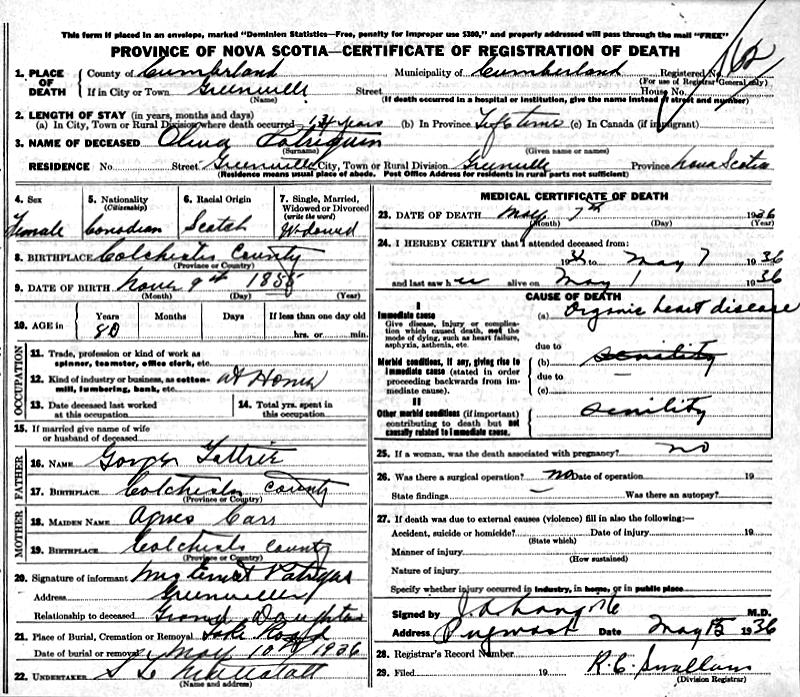 This form if placed in an envelope, marked "Dominion Statistics—Free, penalty for improper use $300," and properly addressed will pass through the mail "FREE"
PROVINCE OF NOVA SCOTIA—CERTIFICATE OF REGISTRATION OF DEATH
1. PLACE OF DEATH County of Cumberland Municipality of Cumberland Registered No.
(For use of Registrar General only)
If in City or Town Greenville Street House No.
(Name) (If death occurred in a hospital or institution, give the name instead of street and number)
2. LENGTH OF STAY (in years, months and days)
(a) In City, Town or Rural Division where death occurred years (b) In Province Life time (c) In Canada (if immigrant)
3. NAME OF DECEASED Patriquin
(Surname) (Given name or names)
RESIDENCE No. Street Greenville City, Town or Rural Division Greenville Province Nova Scotia
(Residence means usual place of abode. Post Office Address for residents in rural parts not sufficient)
4. Sex
Female
5. Nationality
(Citizenship)
Canadian
6. Racial Origin
Scotch
7. Single, Married, Widowed or Divorced
(write the word)
Widowed
8. BIRTHPLACE Colchester County
(Province or Country)
9. DATE OF BIRTH Nov 9th 1855
(Month) (Day) (Year)
10. AGE in Years Months Days If less than one day old
80 hrs. or min.
OCCUPATION
11. Trade, profession or kind of work as spinner, teamster, office clerk, etc.
12. Kind of industry or business, as cotton-mill, lumbering, bank, etc. at Home
13. Date deceased last worked at this occupation
14. Total yrs. spent in this occupation
15. If married give name of wife or husband of deceased
FATHER
16. NAME Tattrie
17. BIRTHPLACE Colchester County
(Province or Country)
MOTHER
18. MAIDEN NAME Agnes Carr
19. BIRTHPLACE Colchester County
(Province or Country)
20. Signature of informant Mrs Ernest Patriquin
Address Greenville
Relationship to deceased Grand Daughter
21. Place of Burial, Cremation or Removal Lake Road
Date of burial or removal May 10th 1936
22. UNDERTAKER
(Name and address)
MEDICAL CERTIFICATE OF DEATH
23. DATE OF DEATH May 7th 1936
(Month) (Day) (Year)
24. I HEREBY CERTIFY that I attended deceased from:
19 to May 7 1936
and last saw her alive on May 1 1936
CAUSE OF DEATH
I
Immediate cause
Give disease, injury or complication which caused death, not the mode of dying, such as heart failure, asphyxia, asthenia, etc.
(a) Organic heart disease
due to
Morbid conditions, if any, giving rise to immediate cause (stated in order proceeding backwards from immediate cause).
(b) senility
due to
(c)
II
Other morbid conditions (if important) contributing to death but not causally related to immediate cause.
senility
25. If a woman, was the death associated with pregnancy? no
26. Was there a surgical operation? no Date of operation 19
State findings — Was there an autopsy?
27. If death was due to external causes (violence) fill in also the following:—
Accident, suicide or homicide? Date of injury 19
(State which)
Manner of injury
(How sustained)
Nature of injury
Specify whether injury occurred in industry, in home, or in public place
Signed by M.D.
Address Pugwash Date May 15 1936
28. Registrar's Record Number
29. Filed 19
(Division Registrar)